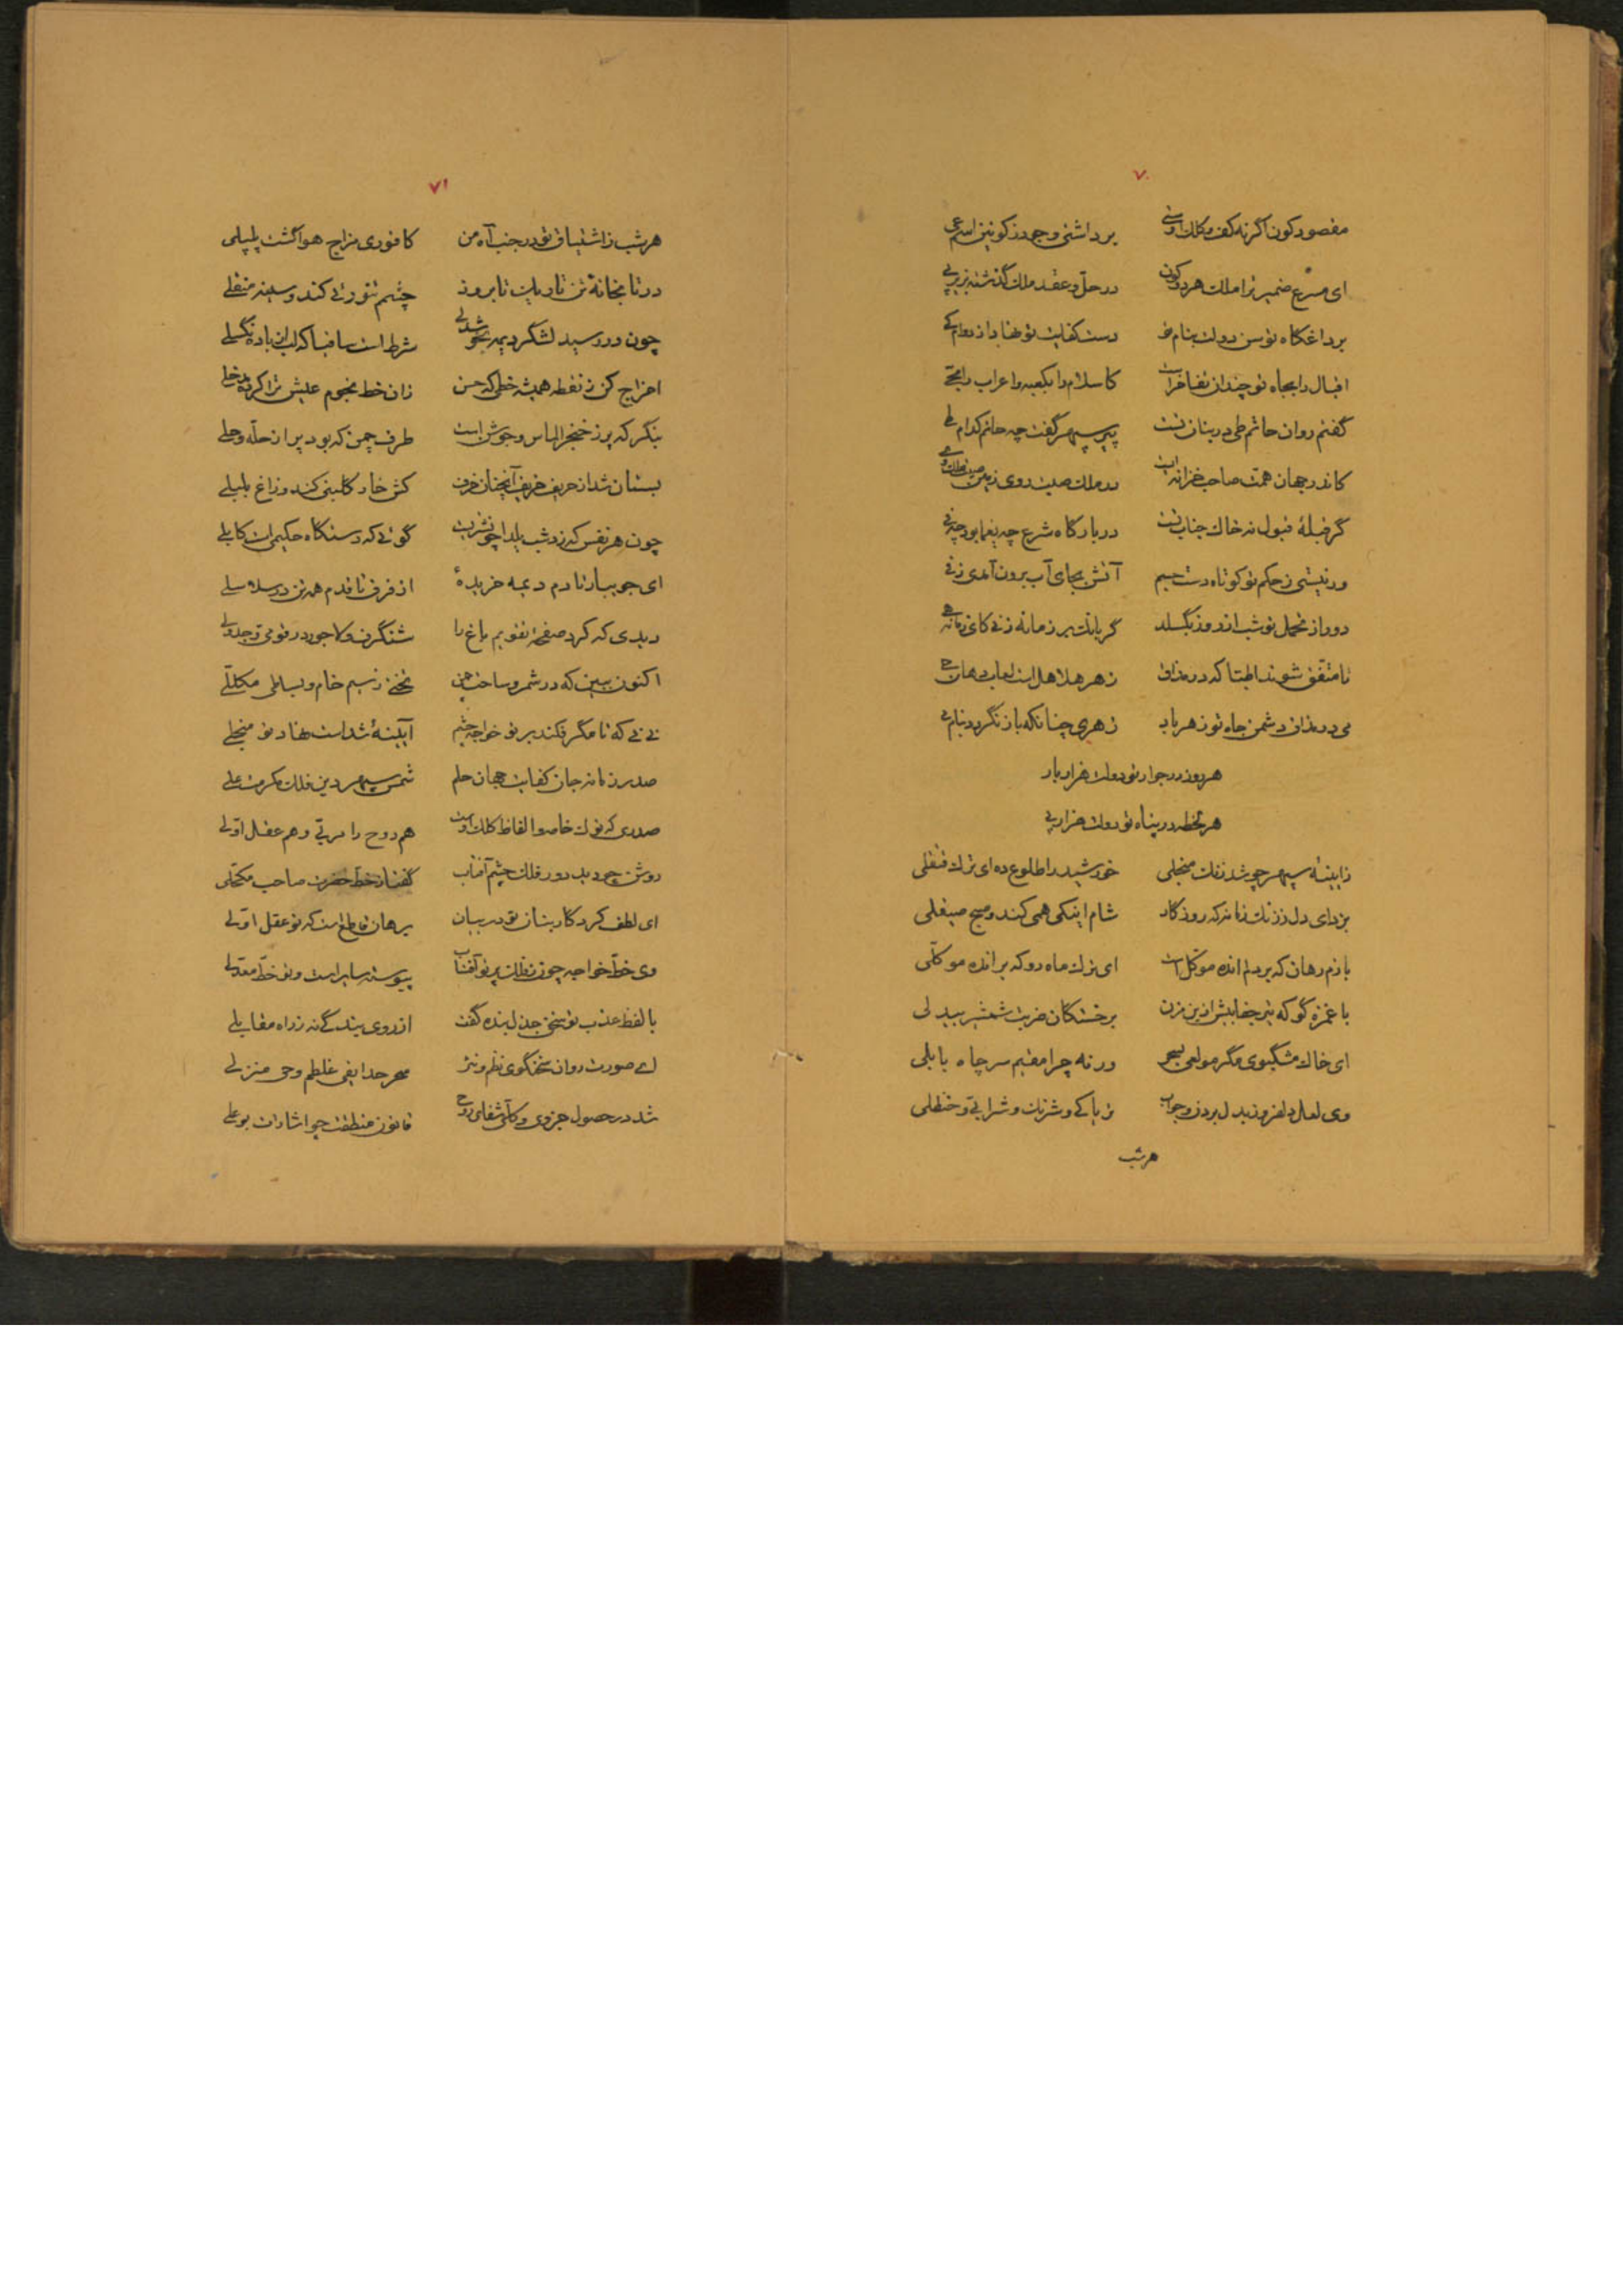 ۷۰
مقصود کون اگر نه کف و کلک اوستی برداشتی وجود ز کونین اسم
ای مسرع ضمیر ترا ملک هر دو کون در حل و عقد ملک گذشته بزیر پی
بر داغگاه توسن دولت بنام تو دست کفایت تو نهاد از دوام کی
اقبال را بجاه تو چندان تفاخر است کاسلام را بکعبه و اعراب را بحی
گفتم روان حاتم طی در بنان تست پیر سپهر گفت چه حاتم کدام طی
کاندر جهان همت صاحب خزانه ایست در ملک صیت روی زمین
گر قبلهٔ قبول نه خاک جناب تست در بارگاه شرع چه یغما بود چه فی
ور نیستی ز حکم تو کوتاه دست جسم آتش بجای آب برون آمدی ز فی
دور از محمل تو شب از روز بگسلد گر بانگ بر زمانه زنی کای زمانه هی
تا متفق شوند اطبا که در مذاق زهر هلاهل است لعاب دهان
می در مذاق دشمن جاه تو زهر باد زهری چنانکه باز نگردد بنام می
هر روز در جوار تو دولت هزار بار
هر لحظه در پناه تو دولت هزار پی
ز آیینهٔ سپهر چو شد زنگ منجلی خورشید را طلوع ده ای ترک
بزدای دل ز زنگ زمانه که روزگار شام اینکی همی کند و صبح صیقلی
بازم رهان که بر دلم انده موکل است ای ترک ماه رو که بر انده موکلی
با غمزه گو که تیر جفا بیش ازین مزن بر خستگان ضربت شمشیر بیدلی
ای خاک مشگبوی مگر مولعی بسحر ورنه چرا مقیم سر چاه بابلی
وی لعل دلفروز بدل بردن و جواب تریاکی و شرنگ و شرابی و حنظلی
هر شب
۷۱
هر شب ز اشتیاق تو در جنب آه من کافوری مزاج هوا گشت پلپلی
در تابخانهٔ تن تاریک تا بروز چشم تنوری کند و سینه منقلی
چون در رسید لشگر دیمه شرط است ساقیا که لب از باده نگسلی
اخراج کن ز نقطه همیشه خطی که حسن زان خط نجوم عیش ترا کرده
بنگر که پر ز خنجر الماس و جوشن است طرف چمن که بود پر از حله و حلی
بستان شد از حریف خریف آنچنان خرف کش خار گلبنی کند و زاغ بلبلی
چون هر نفس که زد شب یلدا گوئی که دستگاه حکیم است کاهلی
ای جویبار تا دم دیمه خریدهٔ از فرق تا قدم همه تن در سلاسلی
دیدی که کرد صفحهٔ تقویم باغ را شنگرف و لاجورد رقومی و جدولی
اکنون ببین که در شمر و ساحت چمن تختی ز سیم خام و بساطی مکللی
نی نی که تا مگر فکند بر تو خواجه چشم آیینهٔ شدست نهاد تو منجلی
صدر زمانه جان کفایت جهان حلم شمس سپهر دین فلک مکرمت علی
صدری که نوک خامه و الفاظ کلک اوست هم روح را مربی و هم عقل اولی
روشن چو دید دور فلک چشم آفتاب گفتا ز خط حضرت صاحب مکحلی
ای لطف کردگار بنان تو در بیان برهان قاطع است که تو عقل اولی
وی خط خواجه چون فلک پر تو آفتاب پیوسته سایر است و تو خط معدلی
با لفظ عذب تو سخن جان بنده گفت از روی بندگی نه ز راه مقابلی
ای صورت روان سخنگوی نظم و نثر سحر حدایقی غلطم وحی منزلی
شد در حصول جزوی و کلی شفای روح قانون منطقت چو اشارات بوعلی